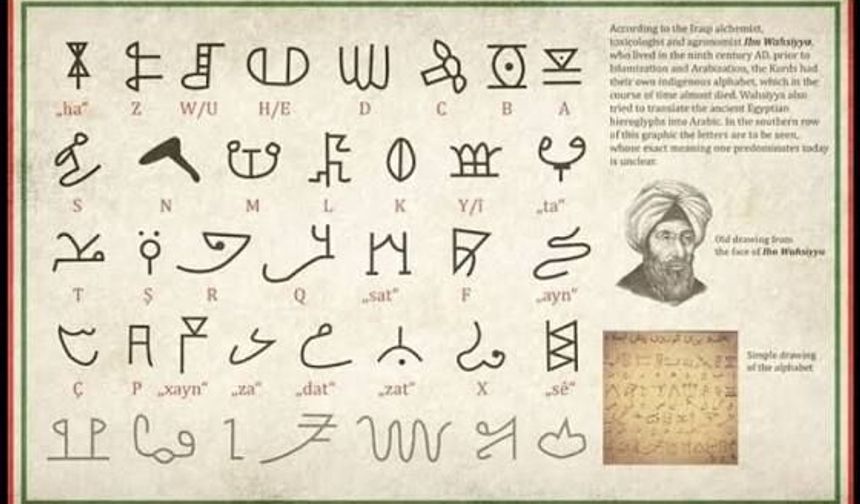 „ha“ Z W/U H/E D C B A
S N M L K Y/Î „ta“
T Ş R Q „sat“ F „ayn“
Ç P „xayn“ „za“ „dat“ „zat“ X „sê“
According to the Iraqi alchemist,
toxicologist and agronomist Ibn Wahsiyya,
who lived in the ninth century AD, prior to
Islamization and Arabization, the Kurds had
their own indigenous alphabet, which in the
course of time almost died. Wahsiyya also
tried to translate the ancient Egyptian
hieroglyphs into Arabic. In the southern row
of this graphic the letters are to be seen,
whose exact meaning one predominates today
is unclear.
Old drawing from
the face of Ibn Wahsiyya
Simple drawing
of the alphabet